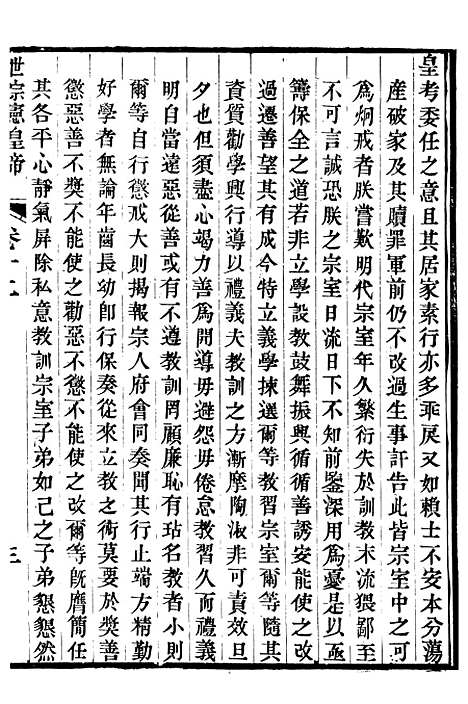 皇考委任之意且其居家素行亦多乖戾又如賴士不安本分蕩
產破家及其贖罪軍前仍不改過生事訐告此皆宗室中之可
爲炯戒者朕嘗歎明代宗室年久繁衍失於訓教末流猥鄙至
不可言誠恐朕之宗室日流日下不知前鑒深用爲憂是以亟
籌保全之道若非立學設教鼓舞振興循循善誘安能使之改
過遷善望其有成今特立義學揀選爾等教習宗室爾等隨其
資質勸學興行導以禮義夫教訓之方漸摩陶淑非可責效旦
夕也但須盡心竭力善爲開導毋避怨毋倦怠教者以而禮義
明自當遠惡從善或有不遵教訓罔顧廉恥有玷名教者小則
爾等自行懲戒大則揭報宗人府會同奏聞其行止端方精勤
好學者無論年齒長幼即行保奏從來立教之術莫要於獎善
懲惡善不獎不能使之勸惡不懲不能使之改爾等旣膺簡任
其各平心靜氣屏除私意教訓宗室子弟如己之子弟懇懇然
世宗憲皇帝 卷十二 三